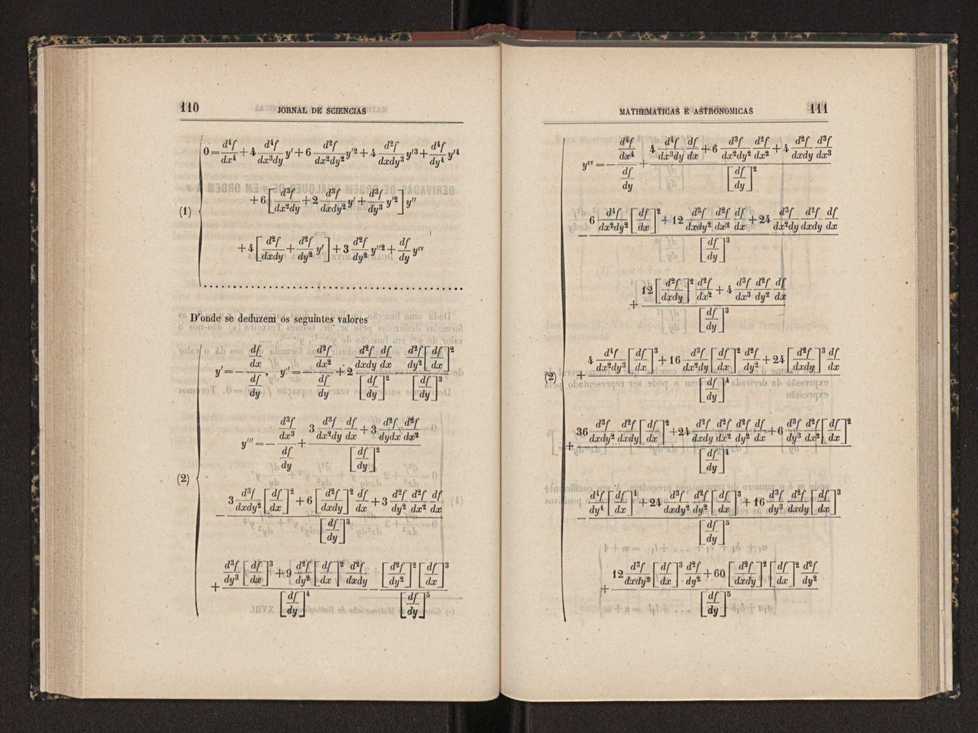 110 JORNAL DE SCIENCIAS
0 = \frac{d^4f}{dx^4} + 4 \frac{d^4f}{dx^3dy} y' + 6 \frac{d^2f}{dx^2dy^2} y'^2 + 4 \frac{d^2f}{dxdy^3} y'^3 + \frac{d^4f}{dy^4} y'^4
(1) + 6 \left[ \frac{d^3f}{dx^2dy} + 2 \frac{d^3f}{dxdy^2} y' + \frac{d^3f}{dy^3} y'^2 \right] y''
+ 4 \left[ \frac{d^2f}{dxdy} + \frac{d^2f}{dy^2} y' \right] + 3 \frac{d^2f}{dy^2} y''^2 + \frac{df}{dy} y^{IV}
D'onde se deduzem os seguintes valores
y' = - \frac{\frac{df}{dx}}{\frac{df}{dy}}, y'' = - \frac{\frac{d^2f}{dx^2}}{\frac{df}{dy}} + 2 \frac{\frac{d^2f}{dxdy} \frac{df}{dx}}{\left[ \frac{df}{dy} \right]^2} - \frac{\frac{d^2f}{dy^2} \left[ \frac{df}{dx} \right]^2}{\left[ \frac{df}{dy} \right]^3}
y''' = - \frac{\frac{d^3f}{dx^3}}{\frac{df}{dy}} + \frac{3 \frac{d^3f}{dx^2dy} \frac{df}{dx} + 3 \frac{d^2f}{dydx} \frac{d^2f}{dx^2}}{\left[ \frac{df}{dy} \right]^2}
(2) - \frac{3 \frac{d^3f}{dxdy^2} \left[ \frac{df}{dx} \right]^2 + 6 \left[ \frac{d^2f}{dxdy} \right]^2 \frac{df}{dx} + 3 \frac{d^2f}{dy^2} \frac{d^2f}{dx^2} \frac{df}{dx}}{\left[ \frac{df}{dy} \right]^3}
+ \frac{\frac{d^3f}{dy^3} \left[ \frac{df}{dx} \right]^3 + 9 \frac{d^2f}{dy^2} \left[ \frac{df}{dx} \right]^2 \frac{d^2f}{dxdy}}{\left[ \frac{df}{dy} \right]^4} - \frac{\left[ \frac{d^2f}{dy^2} \right]^2 \left[ \frac{df}{dx} \right]^3}{\left[ \frac{df}{dy} \right]^5}
MATHEMATICAS E ASTRONOMICAS 111
y^{IV} = - \frac{\frac{d^4f}{dx^4}}{\frac{df}{dy}} + \frac{4 \frac{d^4f}{dx^3dy} \frac{df}{dx} + 6 \frac{d^3f}{dx^2dy} \frac{d^2f}{dx^2} + 4 \frac{d^2f}{dxdy} \frac{d^3f}{dx^3}}{\left[ \frac{df}{dy} \right]^2}
- \frac{6 \frac{d^4f}{dx^2dy^2} \left[ \frac{df}{dx} \right]^2 + 12 \frac{d^3f}{dxdy^2} \frac{d^2f}{dx^2} \frac{df}{dx} + 24 \frac{d^3f}{dx^2dy} \frac{d^2f}{dxdy} \frac{df}{dx}}{\left[ \frac{df}{dy} \right]^3}
+ \frac{12 \left[ \frac{d^2f}{dxdy} \right]^2 \frac{d^2f}{dx^2} + 4 \frac{d^3f}{dx^3} \frac{d^2f}{dy^2} \frac{df}{dx}}{\left[ \frac{df}{dy} \right]^3}
(2) + \frac{4 \frac{d^4f}{dx^2dy^3} \left[ \frac{df}{dx} \right]^3 + 16 \frac{d^3f}{dx^2dy} \left[ \frac{df}{dx} \right]^2 \frac{d^2f}{dy^2} + 24 \left[ \frac{d^2f}{dxdy} \right]^3 \frac{df}{dx}}{\left[ \frac{df}{dy} \right]^4}
+ \frac{36 \frac{d^3f}{dxdy^2} \frac{d^2f}{dxdy} \left[ \frac{df}{dx} \right]^2 + 24 \frac{d^2f}{dxdy} \frac{d^2f}{dx^2} \frac{d^2f}{dy^2} \frac{df}{dx} + 6 \frac{d^3f}{dy^3} \frac{d^2f}{dx^2} \left[ \frac{df}{dx} \right]^2}{\left[ \frac{df}{dy} \right]^4}
- \frac{\frac{d^4f}{dy^4} \left[ \frac{df}{dx} \right]^4 + 24 \frac{d^3f}{dxdy^2} \frac{d^2f}{dy^2} \left[ \frac{df}{dx} \right]^3 + 16 \frac{d^3f}{dy^3} \frac{d^2f}{dxdy} \left[ \frac{df}{dx} \right]^3}{\left[ \frac{df}{dy} \right]^5}
+ \frac{12 \frac{d^3f}{dxdy^2} \left[ \frac{df}{dx} \right]^3 \frac{d^2f}{dy^2} + 60 \left[ \frac{d^2f}{dxdy} \right]^2 \left[ \frac{df}{dx} \right]^2 \frac{d^2f}{dy^2}}{\left[ \frac{df}{dy} \right]^5}